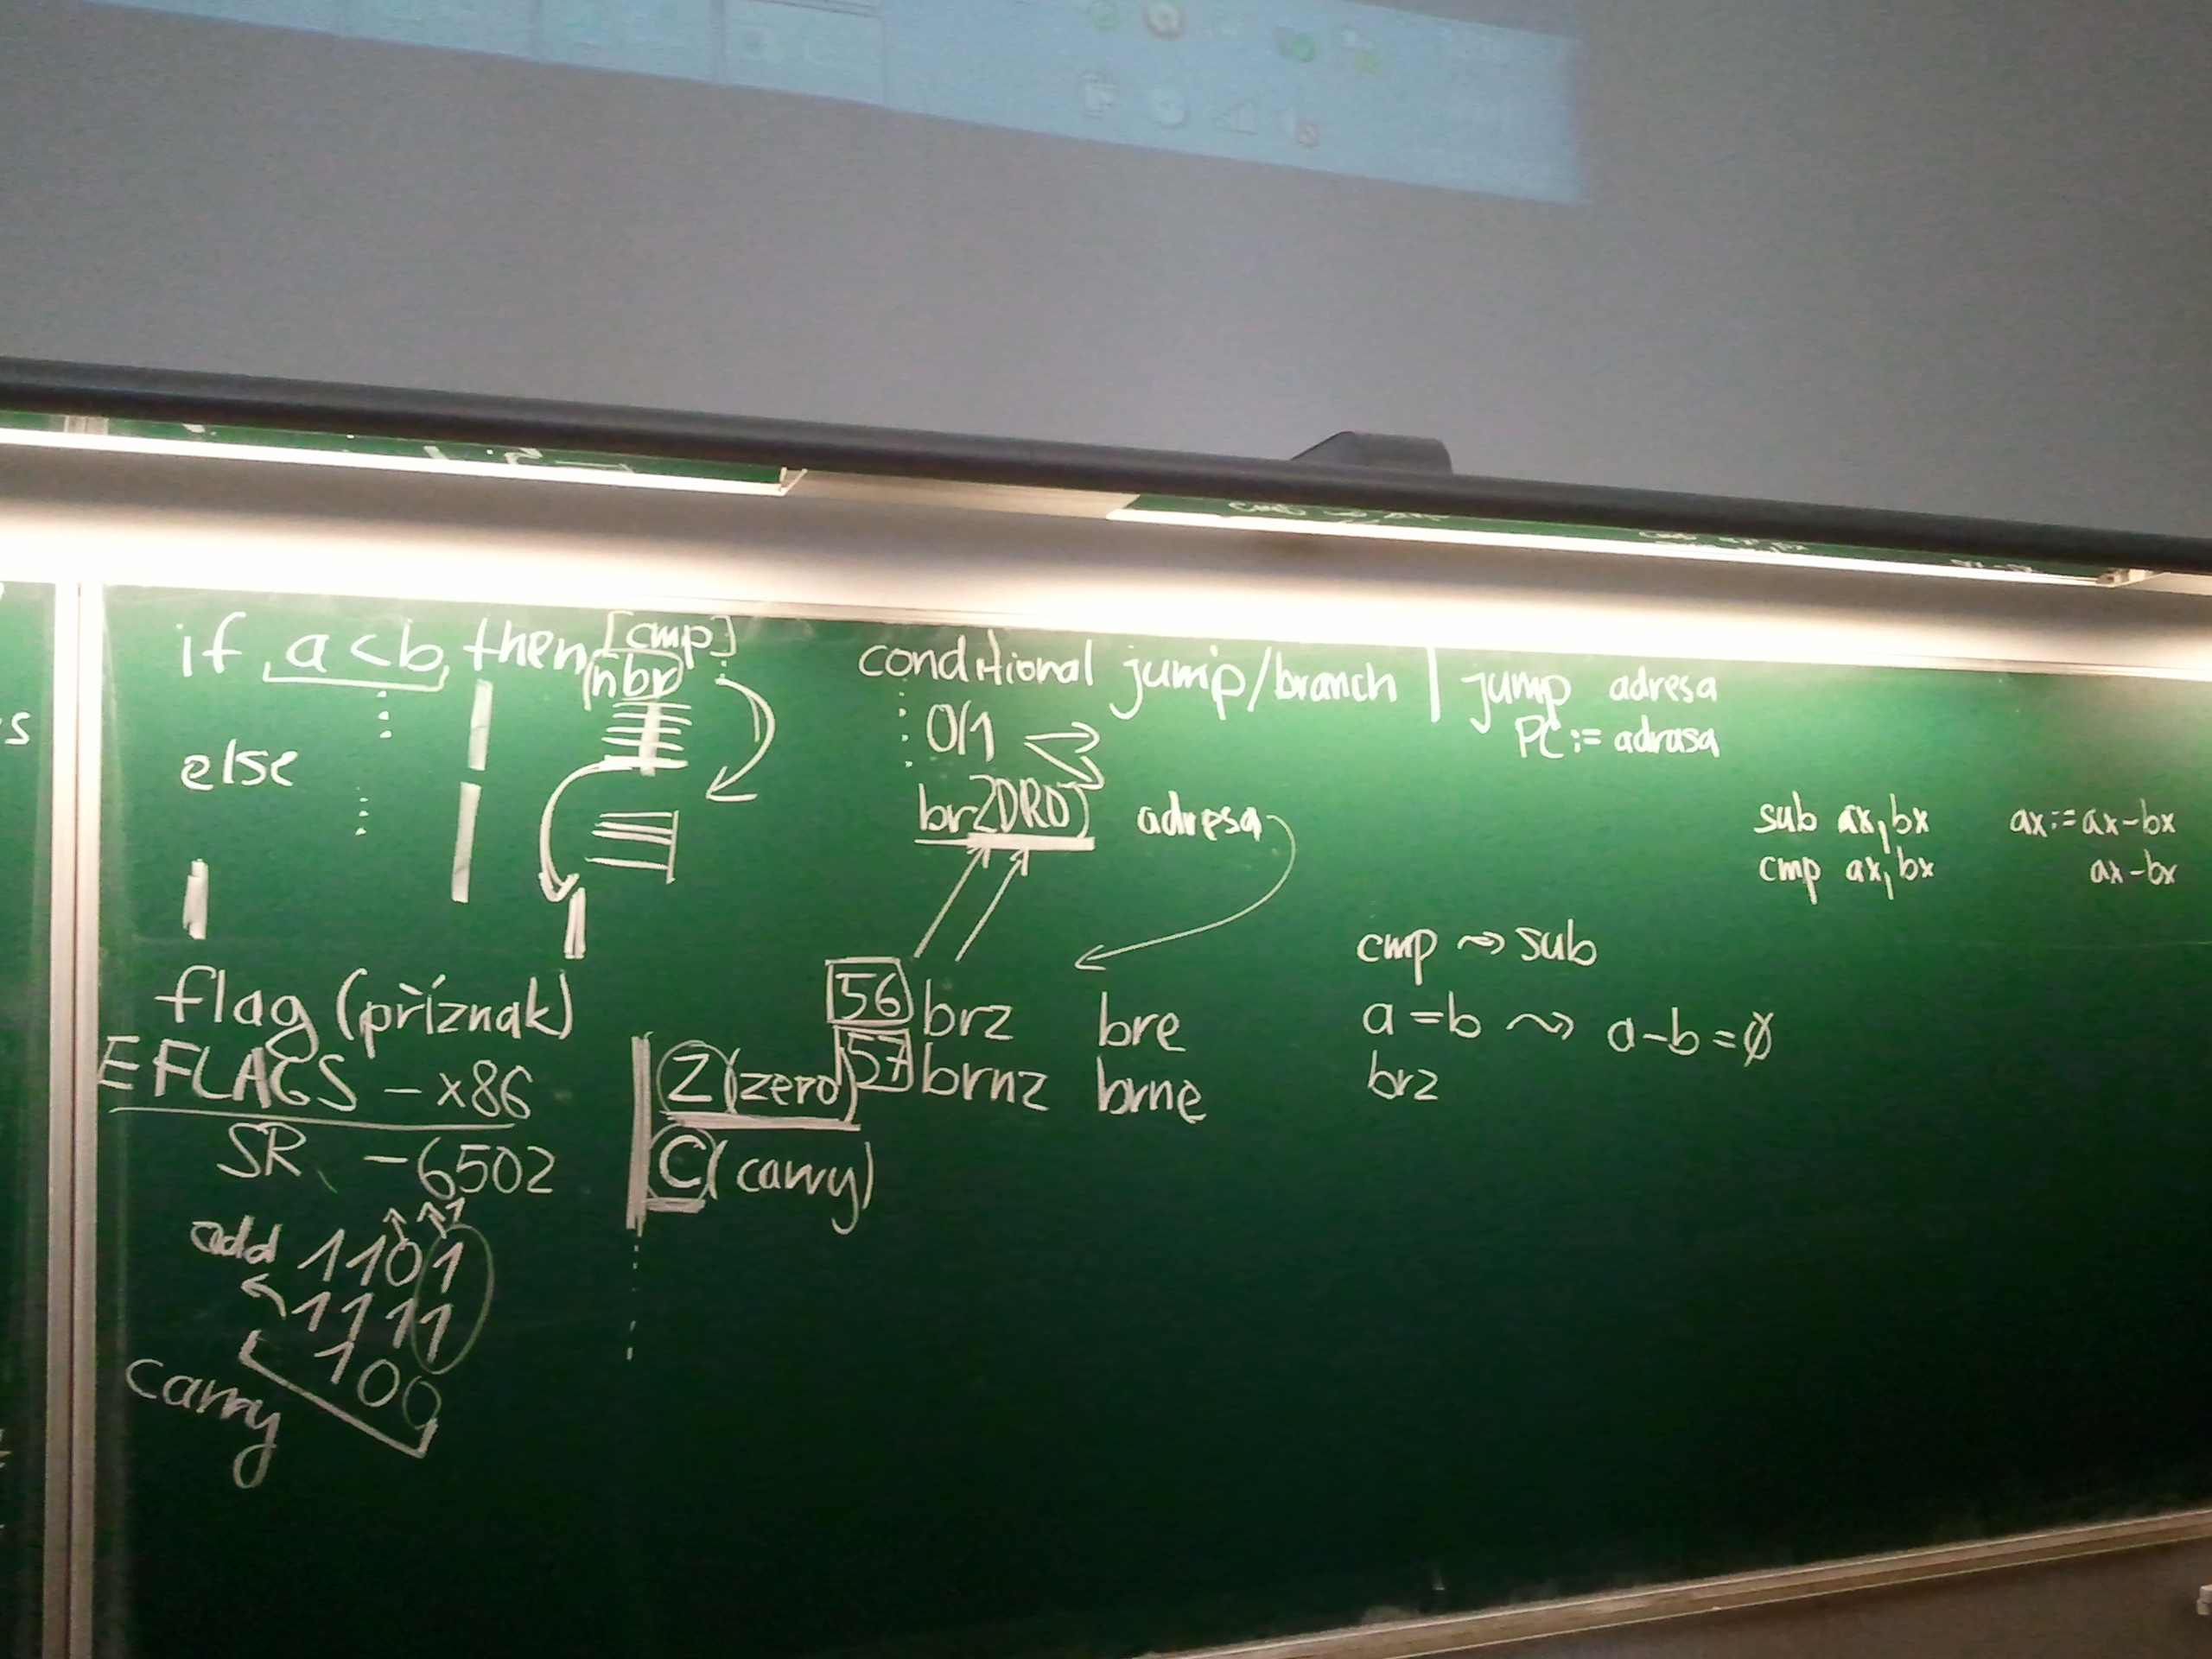 if a<b then [cmp]
nbr
else
conditional jump/branch | jump adresa
0/1
PC := adrasa
adresa
sub ax,bx ax:=ax-bx
cmp ax,bx ax-bx
cmp ~> sub
a=b ~> a-b=∅
brz
56 brz bre
57 brnz brne
flag (příznak)
EFLAGS - x86
SR - 6502
Z (zero)
C (carry)
add 1101
1111
100
carry